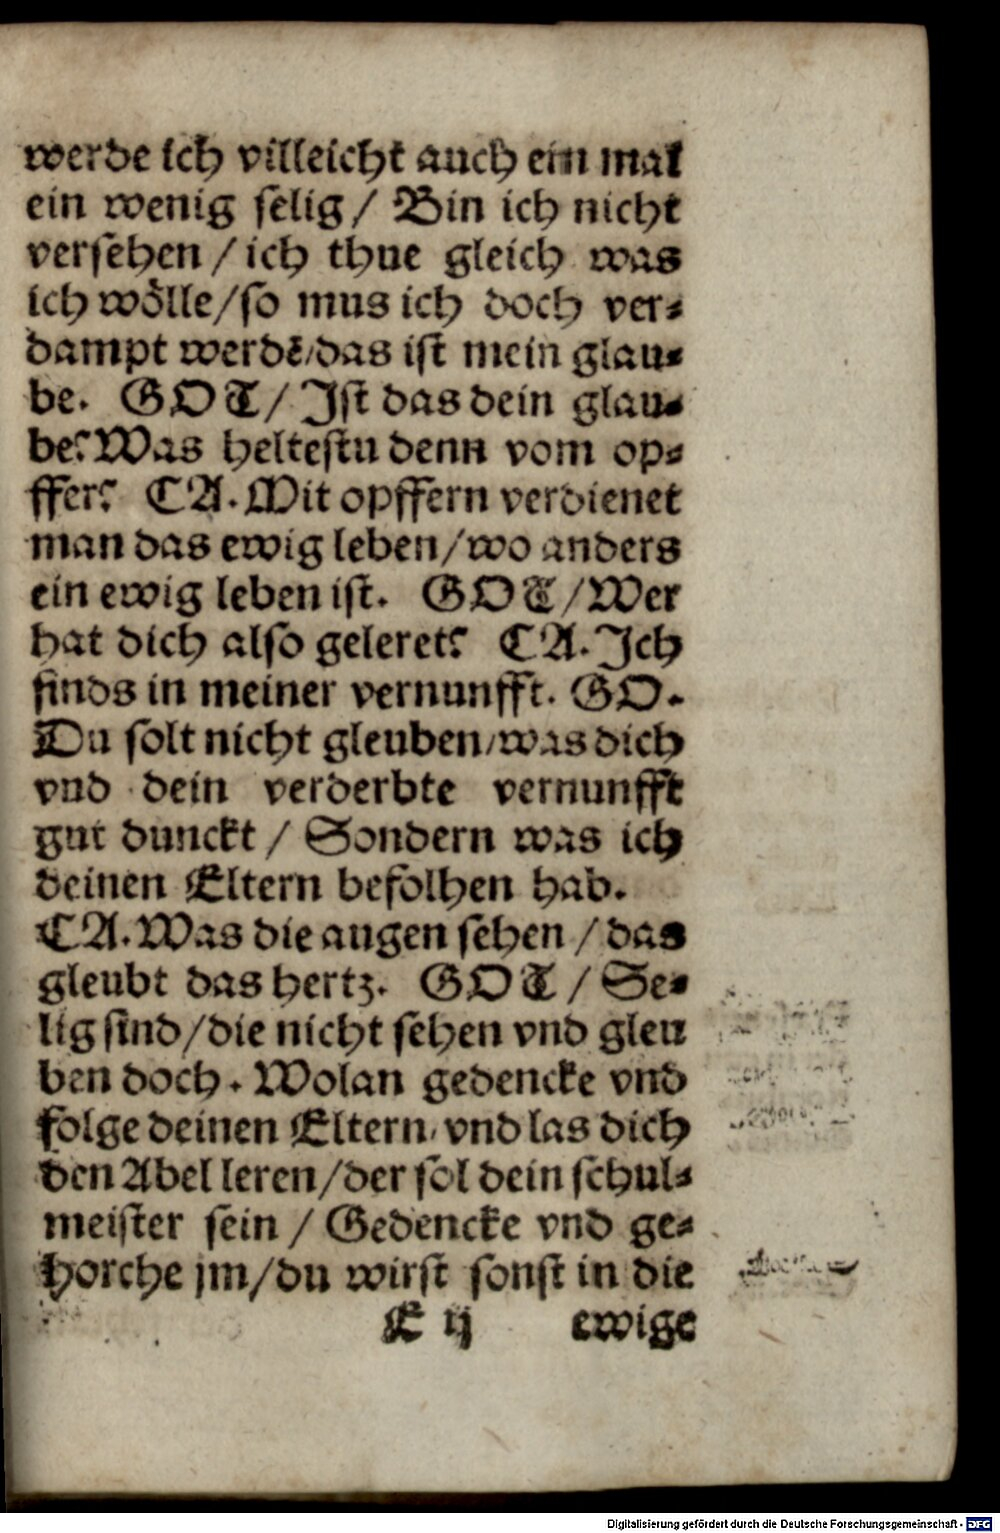 werde ich villeicht auch ein mal
ein wenig selig / Bin ich nicht
versehen / ich thue gleich was
ich wölle/so mus ich doch ver⸗
dampt werdē/das ist mein glau⸗
be. GOT/ Ist das dein glau⸗
be? Was heltestu denn vom op⸗
ffer? CA. Mit opffern verdienet
man das ewig leben/wo anders
ein ewig leben ist. GOT/Wer
hat dich also geleret? CA. Ich
finds in meiner vernunfft. GO.
Du solt nicht gleuben/was dich
vnd dein verderbte vernunfft
gut dunckt / Sondern was ich
deinen Eltern befolhen hab.
CA. Was die augen sehen / das
gleubt das hertz. GOT / Se⸗
lig sind/die nicht sehen vnd gleu
ben doch. Wolan gedencke vnd
folge deinen Eltern/ vnd las dich
den Abel leren/der sol dein schul⸗
meister sein / Gedencke vnd ge⸗
horche jm/du wirst sonst in die
E ij ewige
Digitalisierung gefördert durch die Deutsche Forschungsgemeinschaft - DFG